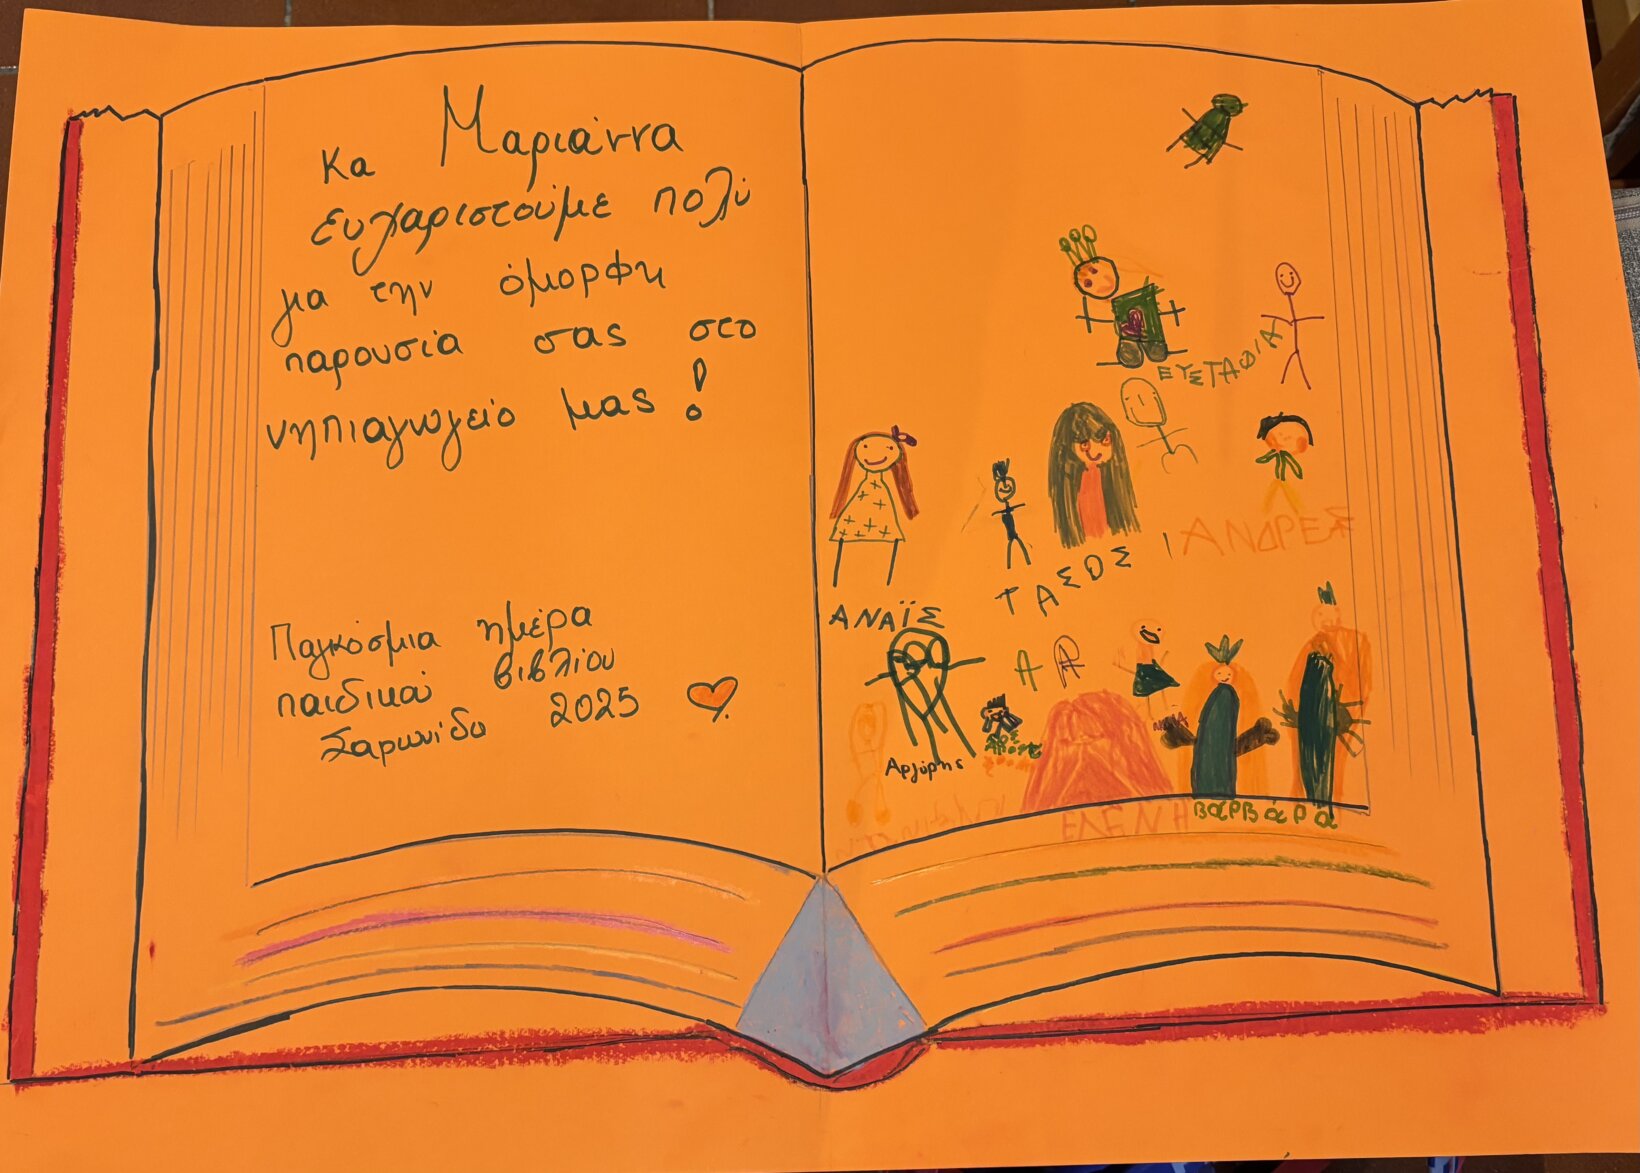 Κα Μαριάννα
ευχαριστούμε πολύ
για την όμορφη
παρουσία σας στο
νηπιαγωγείο μας!
Παγκόσμια ημέρα
παιδικού βιβλίου
Σαρωνίδα 2025
ΕΥΣΤΑΘΙΑ
ΑΝΔΡΕΑΣ
ΤΑΣΟΣ
ΑΝΑΪΣ
Αργύρης
ΕΛΕΝΗ
ΒαΡΒάΡα